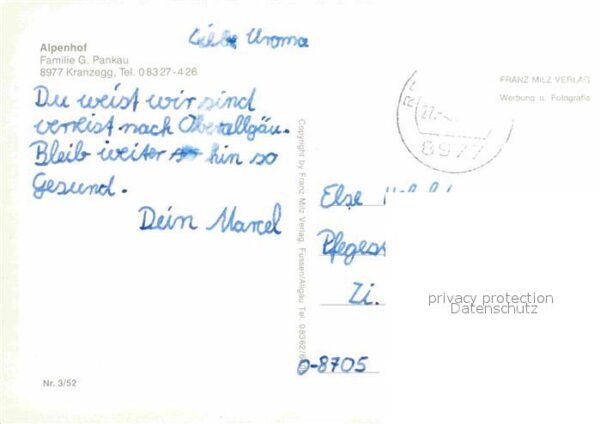 Liebe Uroma
Alpenhof
Familie G. Pankau
8977 Kranzegg, Tel. 08327-426
Du weist wir sind
verreist nach Oberallgäu.
Bleib weiter hin so
Gesund.
Dein Marcel
Nr. 3/52
Copyright by Franz Milz Verlag, Fussen/Allgäu Tel. 08362/6
FRANZ MILZ VERLAG
Werbung u. Fotografie
27.
8977
Else
Pfleges
Zi.
O-8705
privacy protection
Datenschutz